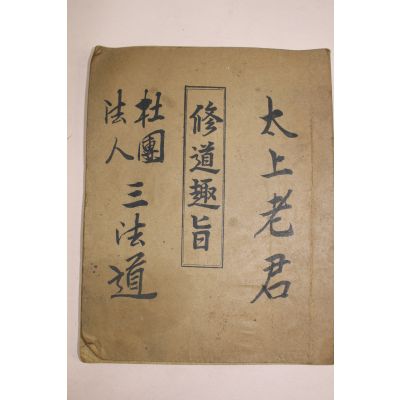 太上老君
修道趣旨
杜團
法人
三法道